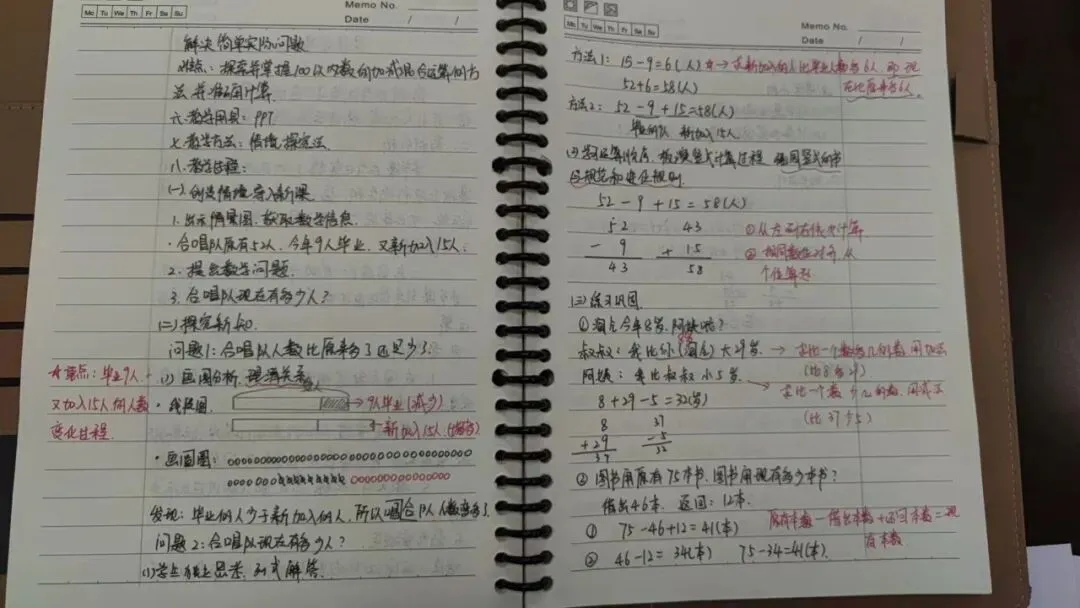 Memo No.
Mo Tu We Th Fr Sa Su
Date / /
解决简单实际问题
难点：探索并掌握100以内数的加减混合运算的方
法并准确计算.
六.教学用具：PPT
七.教学方法：情境探究法
八.教学过程：
(一)创设情境,导入新课
1.出示情景图,获取数学信息.
·合唱队原有52人,今年9人毕业,又新加入15人.
2.提出数学问题.
3.合唱队现在有多少人？
(二)探究新知.
问题1：合唱队人数比原来多了还是少了.
☆重点：毕业9人,
又加入15人,的人数
变化过程.
(1)画图分析,理清关系
·线段图.
→9人毕业(减少)
→新加入15人.(增多)
·画圆图：
发现：毕业的人少于新加入的人,所以唱合队人数变多了.
问题2：合唱队现在有多少人？
(1)学生独立思考,列式解答.
Memo No.
Mo Tu We Th Fr Sa Su
Date / /
方法1：15-9=6(人)☆→求新加入的人比毕业人数多6人,即现
在比原来多6人.
52+6=58(人)
方法2：52-9+15=58(人)
新加入15人.
52-9+15=58(人)
52 43
- 9 + 15
43 58
①从左到右依次计算
②相同数位对齐,从
个位算起
(三)练习巩固
①淘气今年8岁,阿姨呢？
叔叔：我比你(淘气)大29岁.→求比一个数多几的数,用加法
(比8多29)
阿姨：我比叔叔小5岁.→求比一个数少几的数,用减法
(比37少5)
8+29-5=32(岁)
8 37
+29 -5
37 32
②图书角原有75本书,图书角现有多少本书？
借出46本.返回：12本.
① 75-46+12=41(本)
原有本数-借出本数+还回本数=现
有本数
② 46-12=34(本) 75-34=41(本).